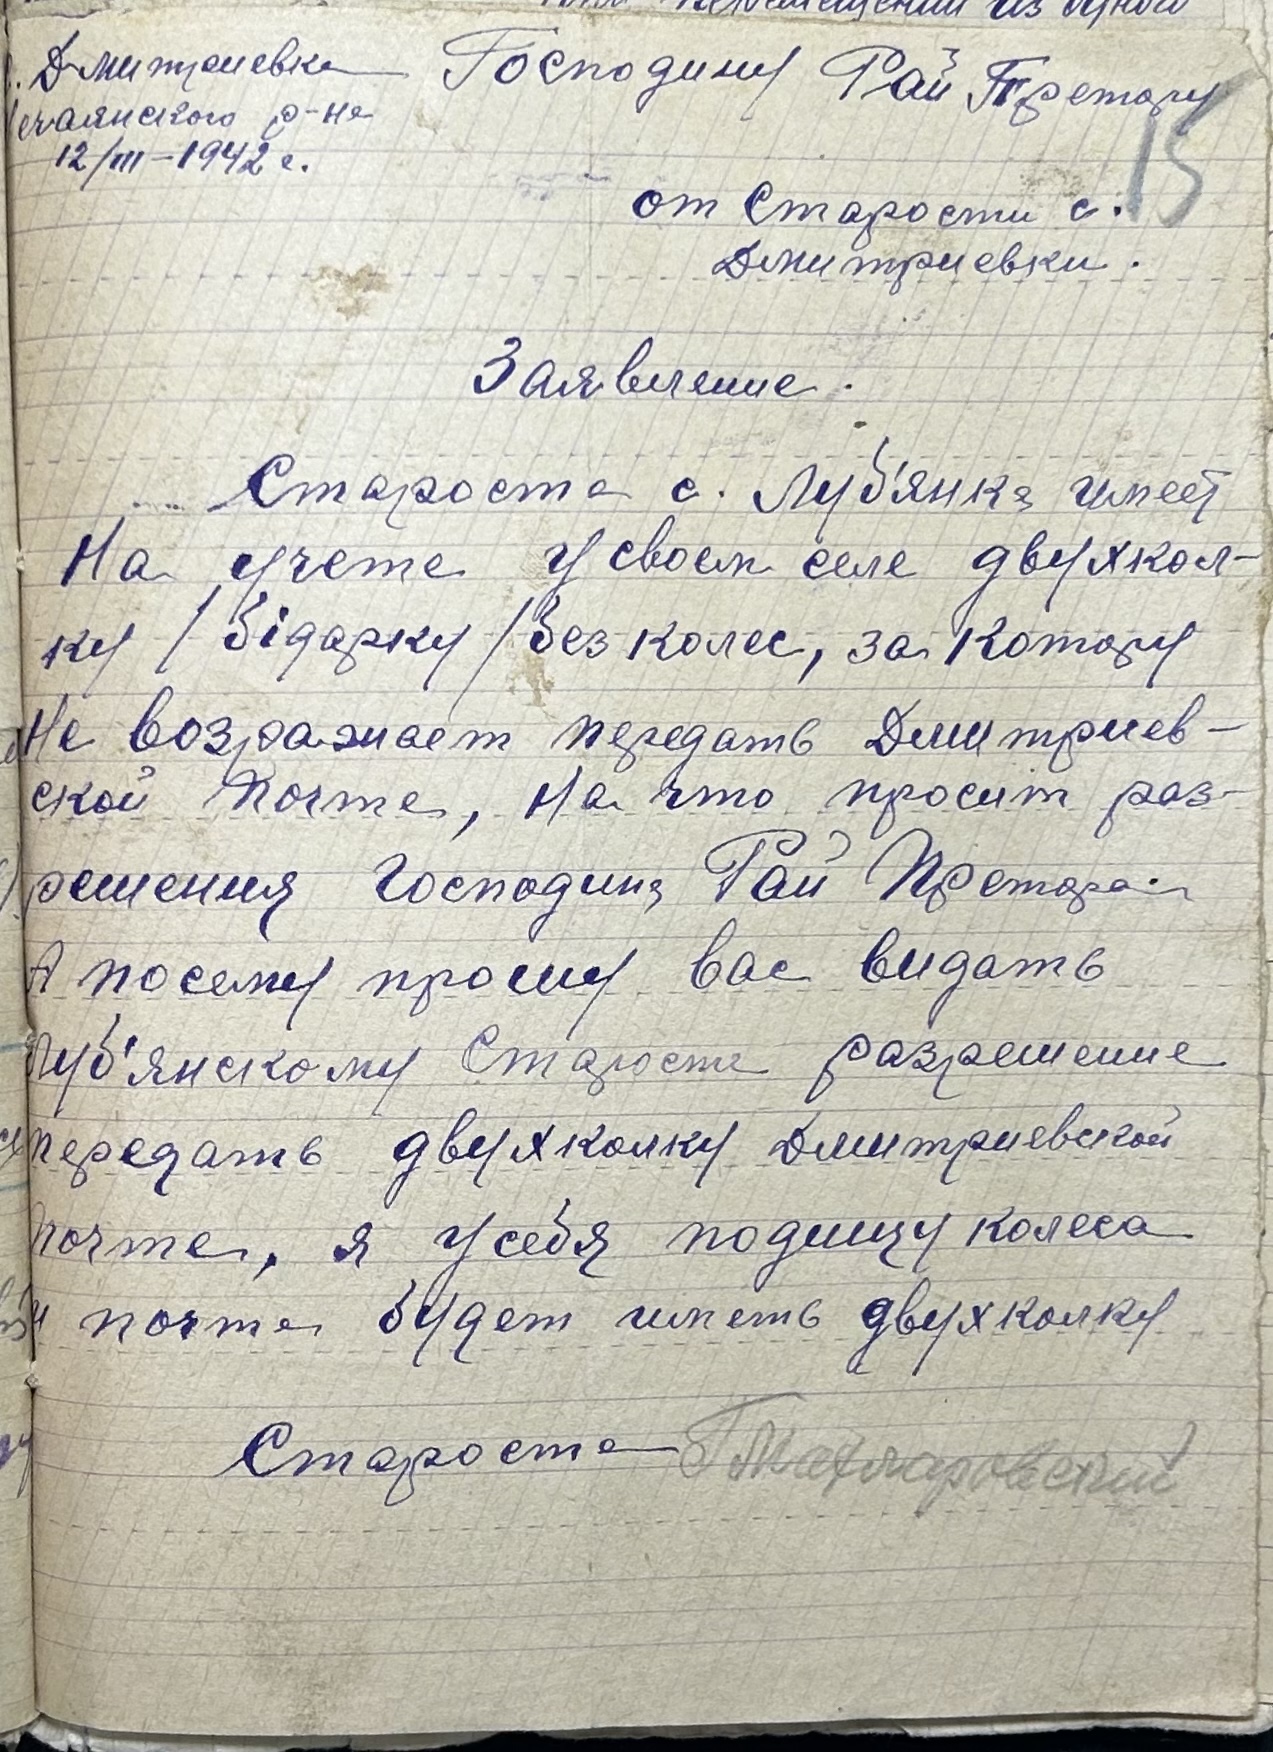 перемещении из одной
с. Дмитриевка Господину Рай Претору
чаянского р-на
12/III-1942 г.
15
от Старости с.
Дмитриевки.
Заявление.
Староста с. Луб'янка имеет
на учете у своем селе двухкол-
ку /бідарку/ без колес, за котору
не возражает передать Дмитриев-
ской почте, на что просит раз-
решения Господина Рай Претора.
А посему прошу вас видать
Луб'янскому Старосте разрешение
передать двухколку Дмитриевской
почте, я у себя подищу колеса
и почта будет иметь двухколку
Староста